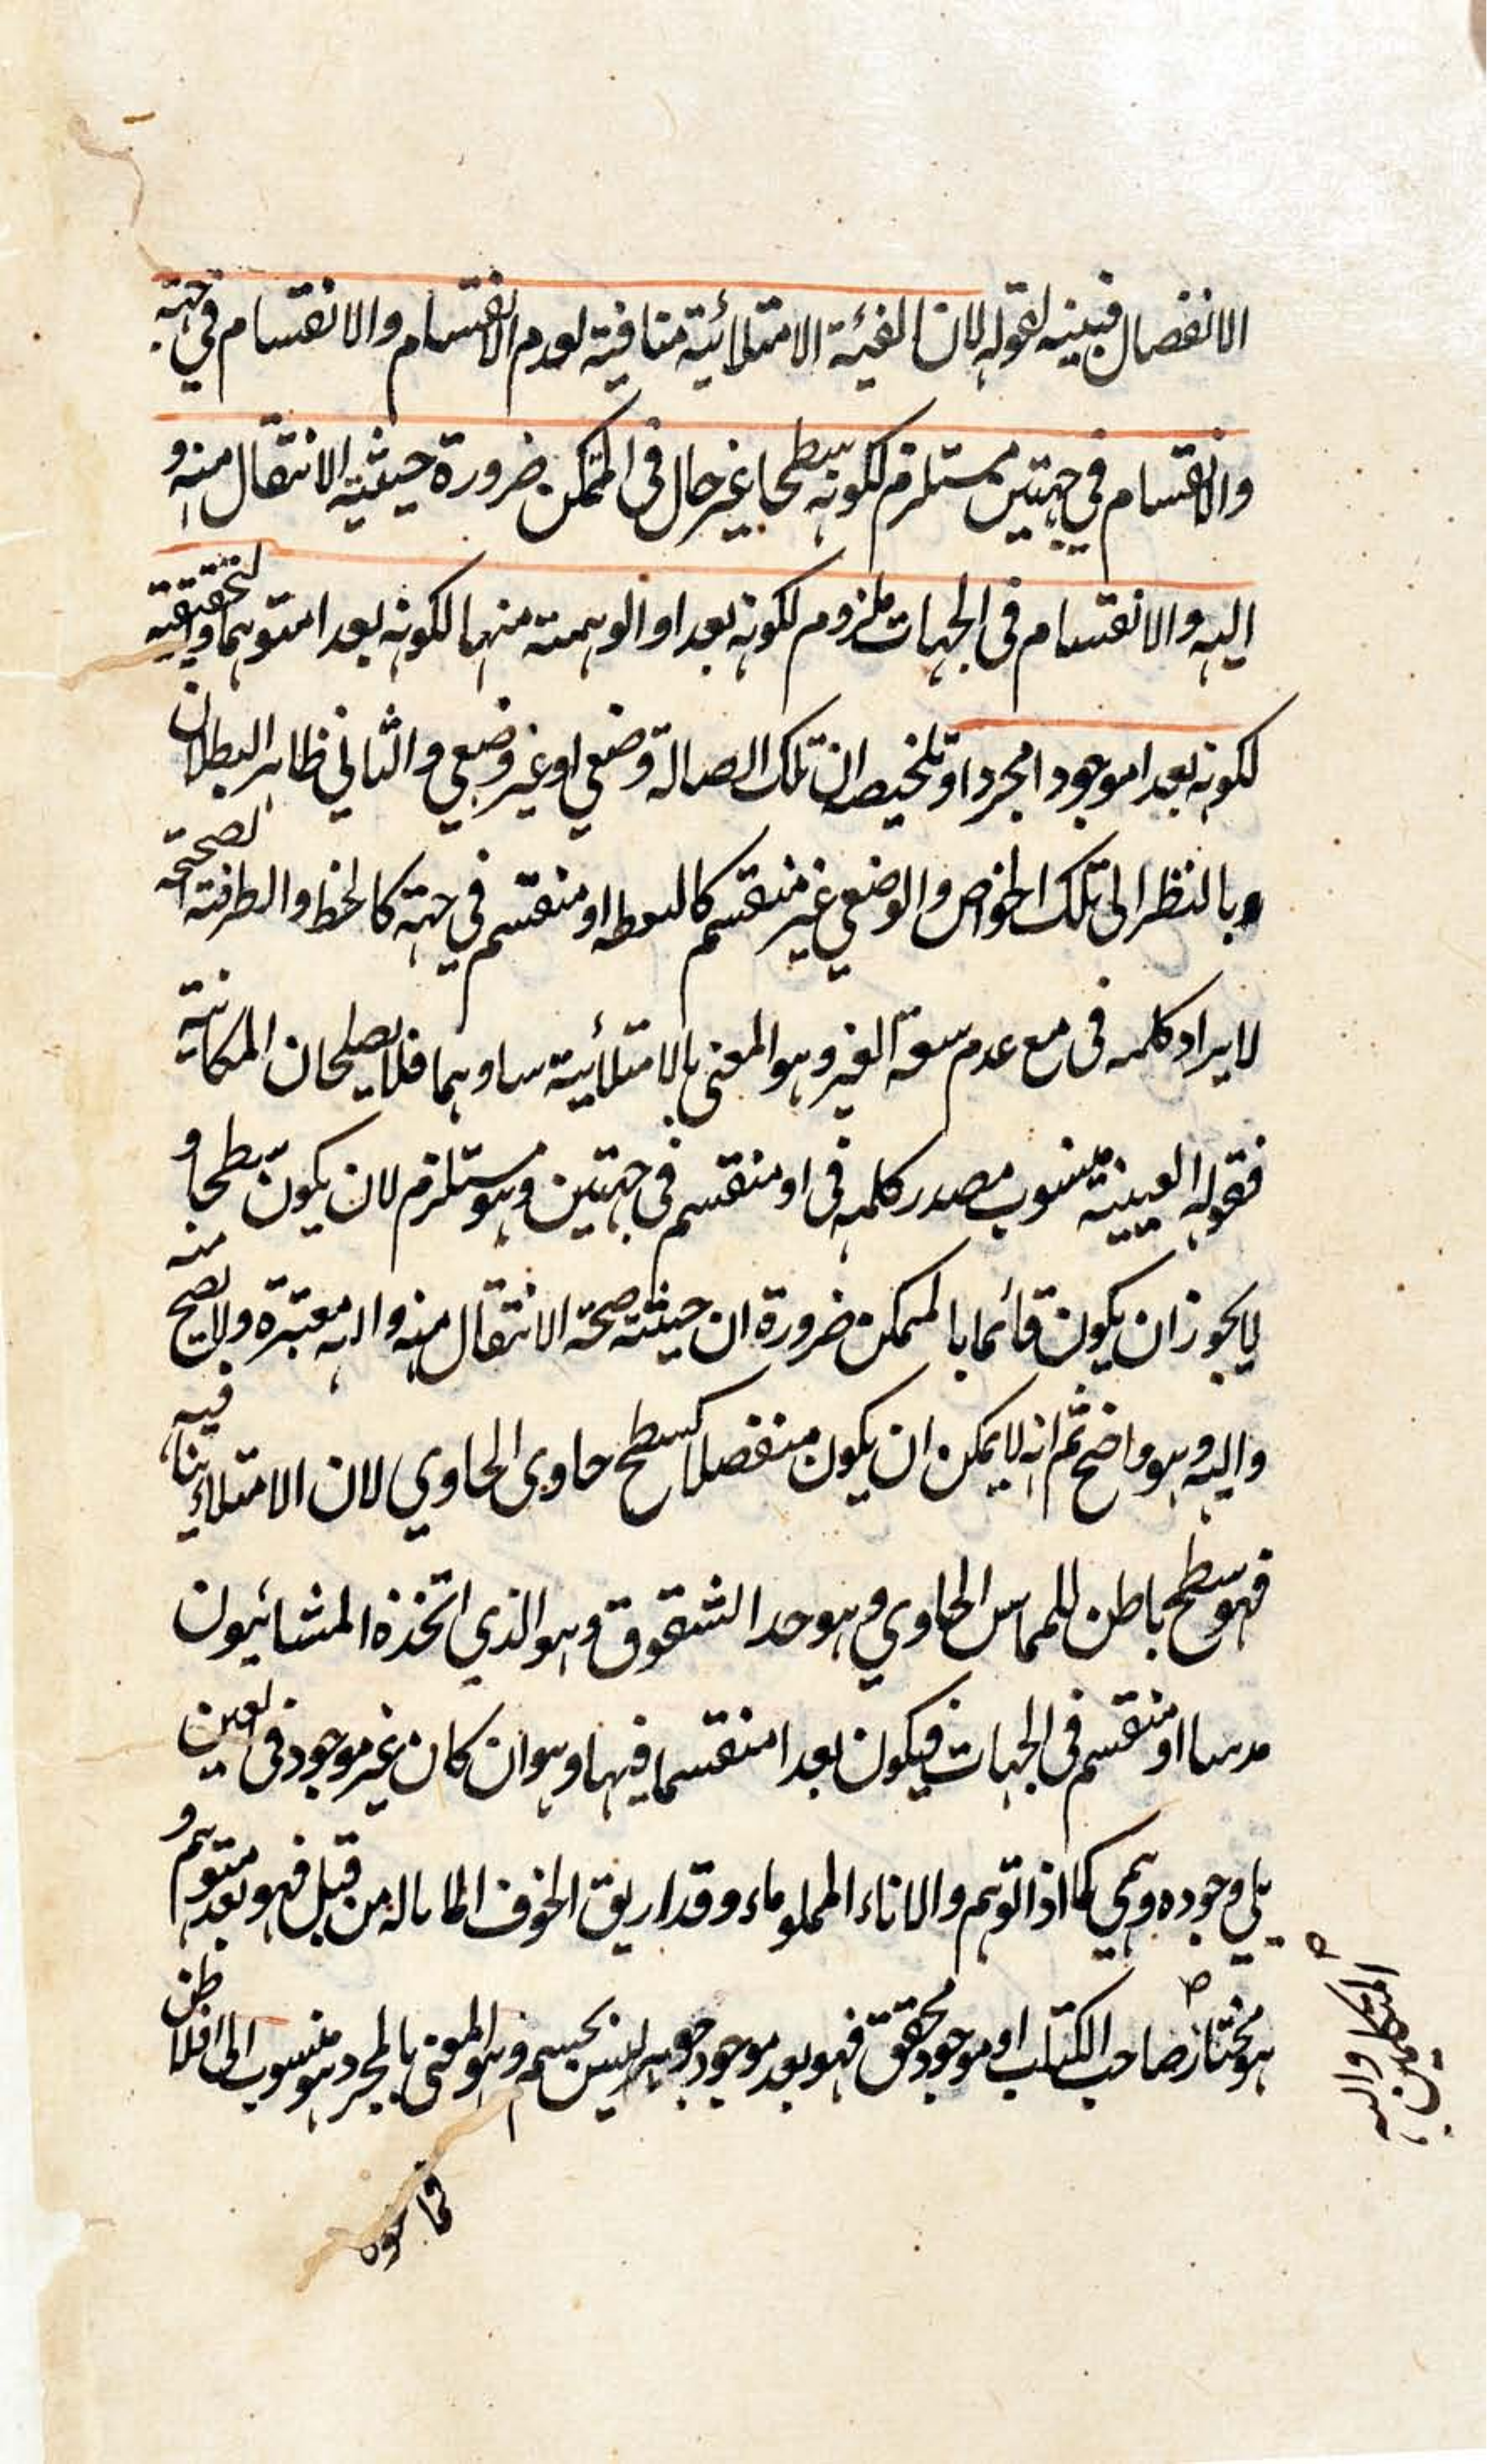 الانفصال فبينه لقوله لان الفيئة الامتلائية منافية لعدم الانقسام والانقسام في جهة
والانقسام في جهتين مستلزم لكونه سطحا غير حال في المتمكن ضرورة حيثية الانتقال منه و
اليه والانقسام في الجهات ملزوم لكونه بعدا والوهمية منها لكونه بعدا متوهما والتحقيقية
لكونه بعدا موجودا مجردا وتلخيصه ان تلك الصالة وضعي او غير وضعي والثاني ظاهر البطلان
بالنظر الى تلك الخواص والوضعي غير منقسم كالنقطة او منقسم في جهة كالخط والظرفية المصححة
لايراد كلمه في مع عدم سعة الغير وهو المعنى بالامتلائية ساوهما فلا يصلحان للمكانية
فقوله الفيئية منسوب مصدر كلمه في او منقسم في جهتين وهو مستلزم لان يكون سطحا و
لا يجوز ان يكون قائما بالمتمكن ضرورة ان حيثية صحة الانتقال منه واليه معتبرة ولا يصح منه
واليه وهو واضح ثم انه لا يمكن ان يكون منفصلا كسطح حاوى الحاوي لان الامتلاء ينافيه
فهو سطح باطن للمماس الحاوي وهو حد الشقوق وهو الذي اتخذه المشائيون
او منقسم في الجهات فيكون بعدا منقسما فيها وهو ان كان غير موجود في العين
بل وجوده وهمي كما اذا توهم والاناء المملو ماء وقد اريق الخوف الماباله من قبل فهو بعد متوهم و
هو مختار صاحب الكتاب او موجود محقق فهو بعد موجود جوهر ليس بجسم وهو المعنى بالمجرد وهو منسوب الى افلاطن
المتكلمين واليه